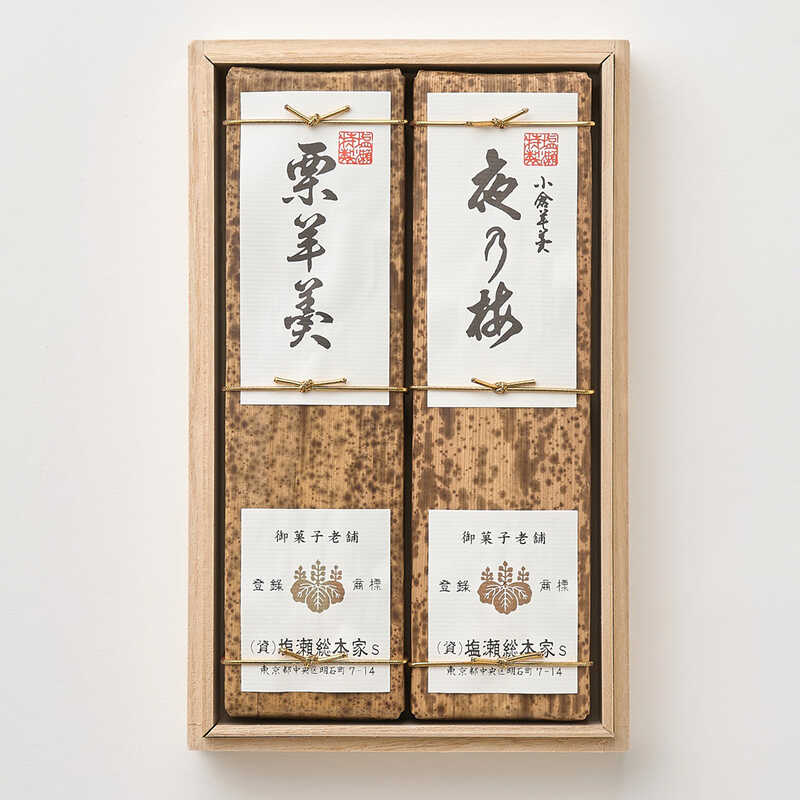 塩瀬
特製
小倉羊羹
夜乃梅
御菓子老舗
登録 商標
(資)塩瀬総本家s
東京都中央区明石町7-14
塩瀬
特製
栗羊羹
御菓子老舗
登録 商標
(資)塩瀬総本家s
東京都中央区明石町7-14